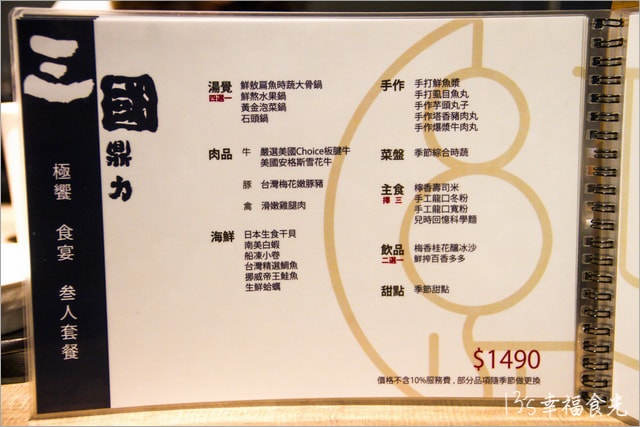 三國鼎力
極饗 食宴 叁人套餐
湯覺
四選一
鮮敖扁魚時蔬大骨鍋
鮮熬水果鍋
黃金泡菜鍋
石頭鍋
肉品 牛 嚴選美國Choice板腱牛
美國安格斯雪花牛
豚 台灣梅花嫩豚豬
禽 滑嫩雞腿肉
海鮮 日本生食干貝
南美白蝦
船凍小卷
台灣精選鯛魚
挪威帝王鮭魚
生鮮蛤蠣
手作 手打鮮魚漿
手打虱目魚丸
手作芋頭丸子
手作塔香豬肉丸
手作爆漿牛肉丸
菜盤 季節綜合時蔬
主食
擇 三
檸香壽司米
手工龍口冬粉
手工龍口寬粉
兒時回憶科學麵
飲品
二選一
梅香桂花釀冰沙
鮮搾百香多多
甜點 季節甜點
$1490
價格不含10%服務費，部分品項隨季節做更換
135幸福食光